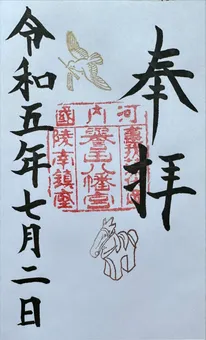 奉拝
河内
譽田八幡宮
國陵奉鎮座
令和五年七月二日